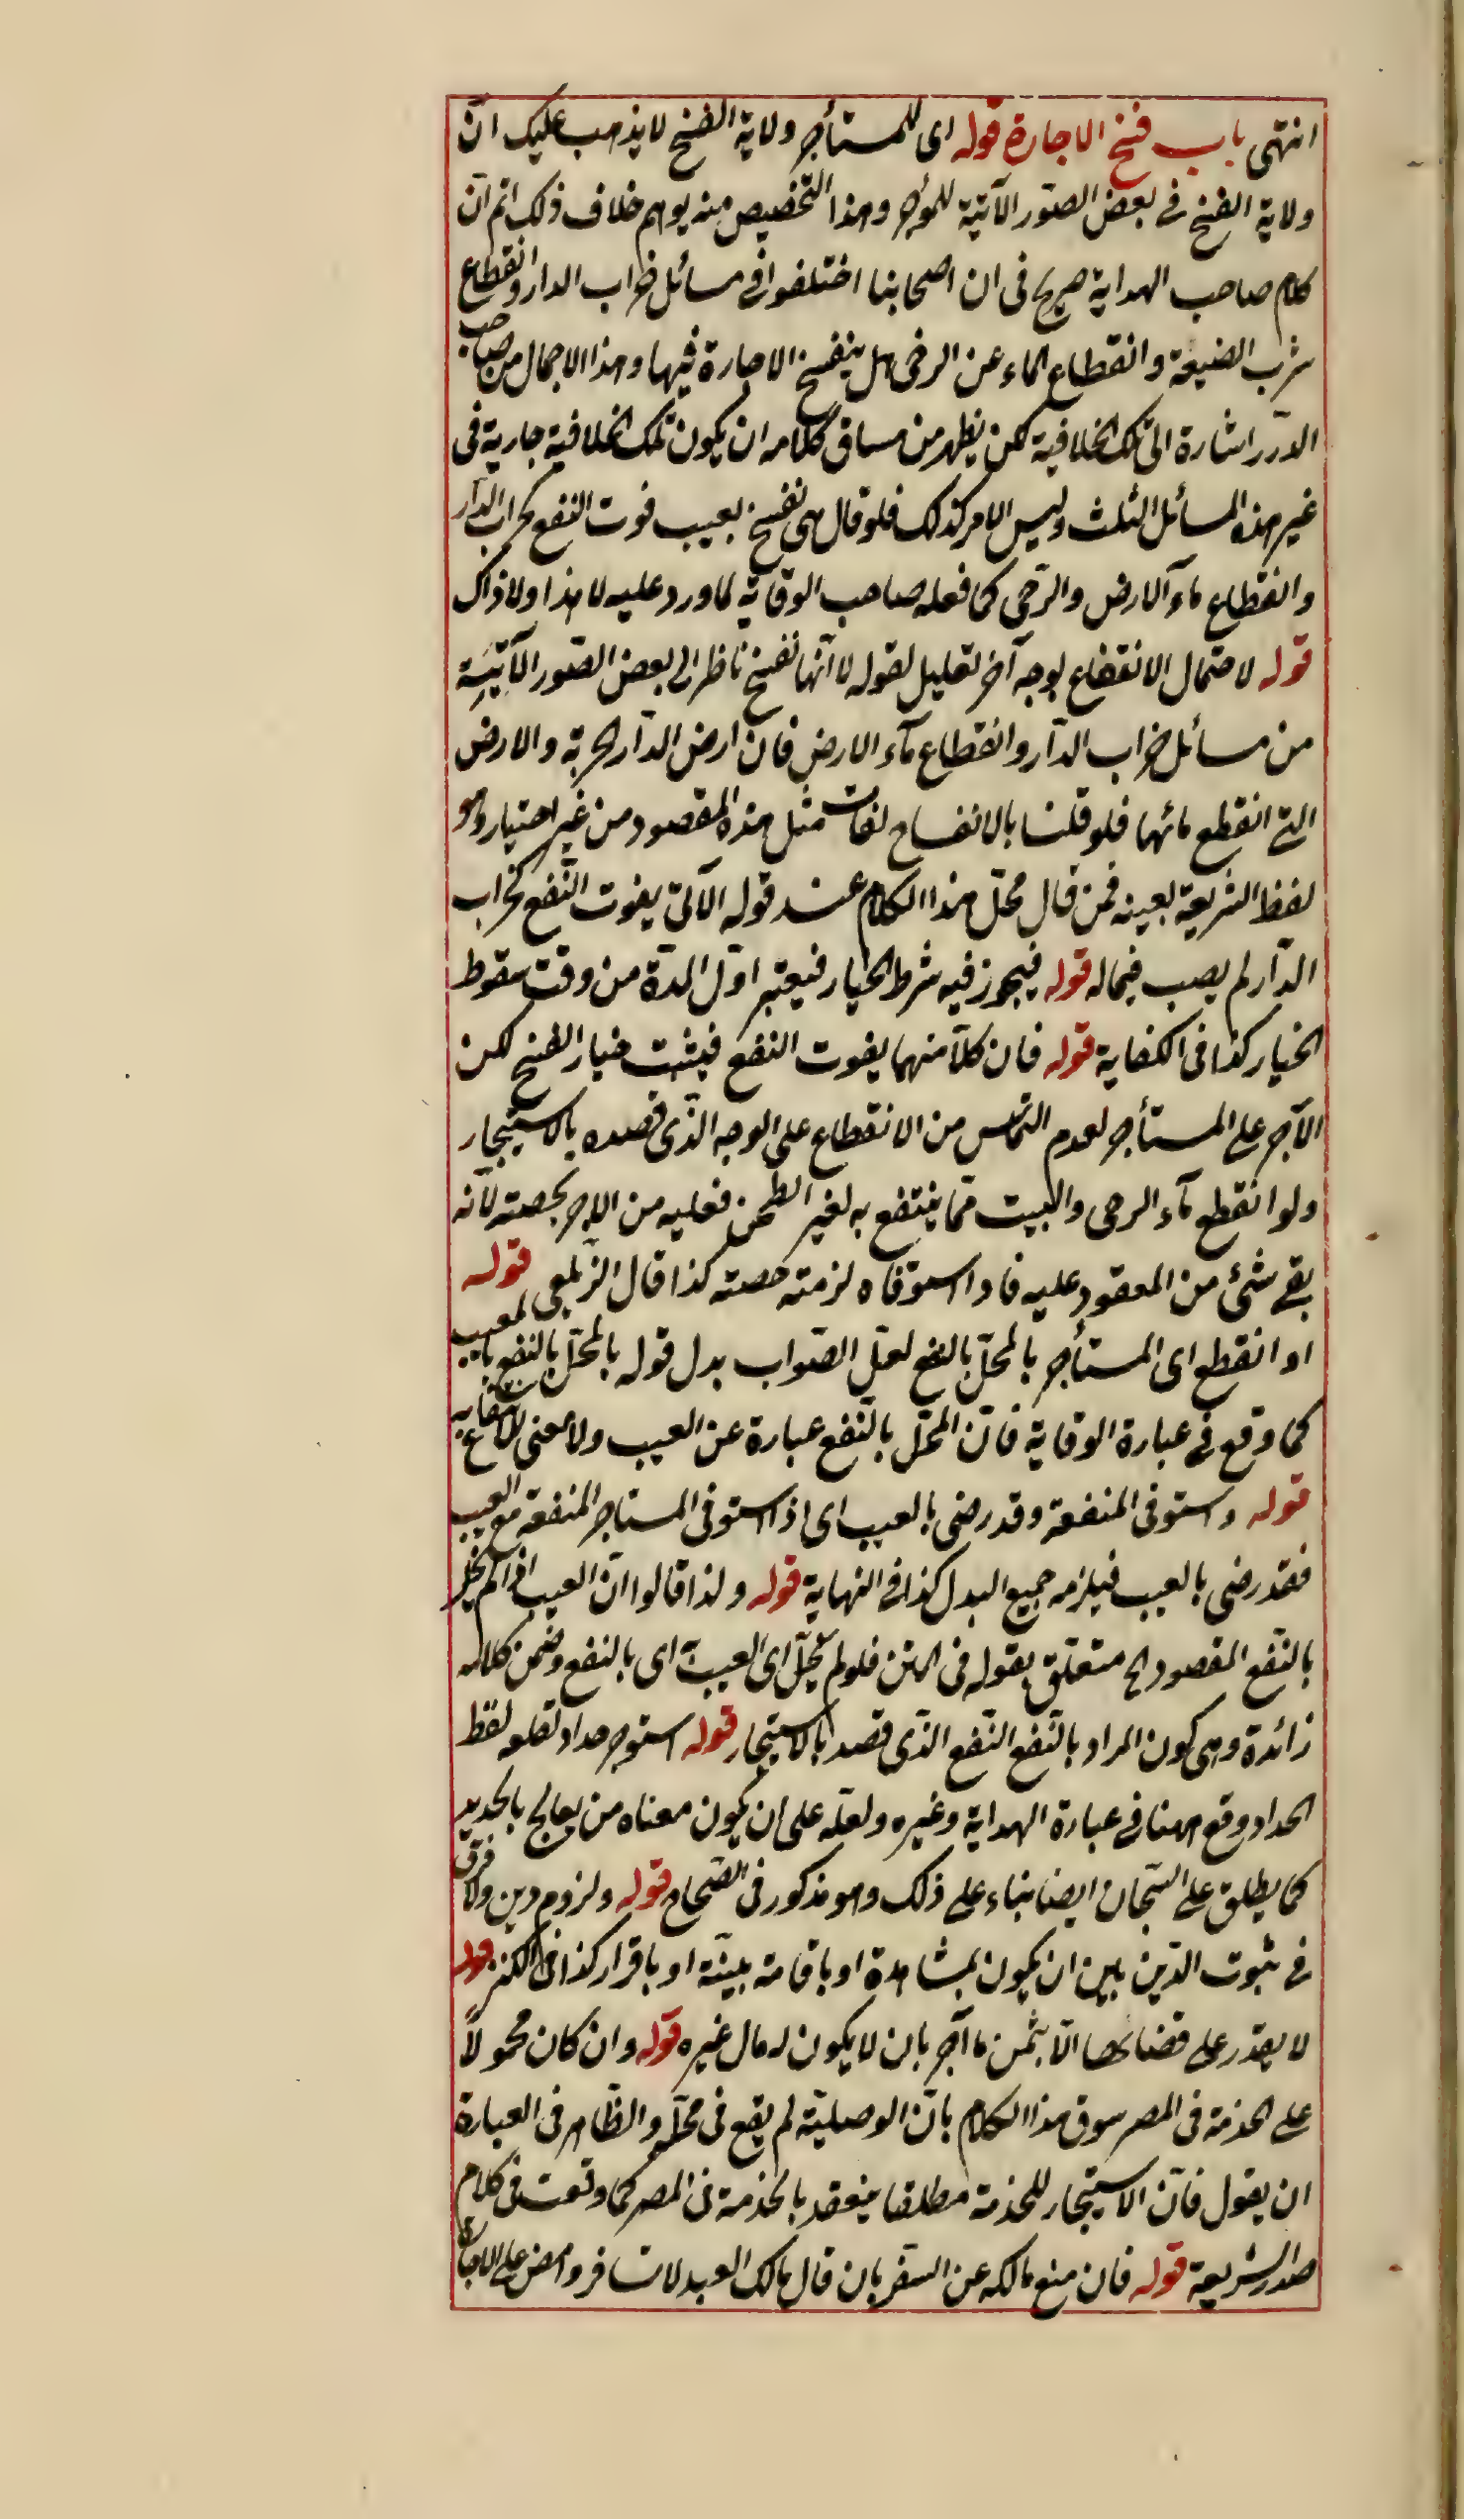 انتهى باب فسخ الاجارة قوله اى للمستأجر ولاية الفسخ لا يذهب عليك ان
ولاية الفسخ فى بعض الصور الآتية للموجر وهذا التخصيص منه يوهم خلاف ذلك ثم ان
كلام صاحب الهداية صريح فى ان اصحابنا اختلفوا فى مسائل خراب الدار وانقطاع
شرب الضيعة وانقطاع الماء عن الرحى هل ينفسخ الاجارة فيها وهذا الاجمال من صاحب
الدرر اشارة الى تلك الخلافية لكن يظهر من مساق كلامه ان يكون تلك الخلافية جارية فى
غير هذه المسائل الثلث وليس الامر كذلك فلو قال هى تفسخ بعيب فوت النفع كخراب الدار
وانقطاع ماء الارض والرحى كما فعله صاحب الوقاية لما ورد عليه لا هذا ولا ذاك
قوله لاحتمال الانتفاع بوجه آخر تعليل لقوله لا انها تفسخ ناظر الى بعض الصور الآتية
من مسائل خراب الدار وانقطاع ماء الارض فان ارض الدار الخربة والارض
التى انقطع مائها فلو قلنا بالانفساخ لفات مثل هذه المقصود من غير اختيار وهو
لفظ الشريعة بعينه فمن قال محل هذا الكلام عند قوله الآتى يفوت النفع كخراب
الدار لم يصب فيما له قوله فيجوز فيه شرط الخيار فيعتبر اول المدة من وقت سقوط
الخيار كذا فى الكفاية قوله فان كلا منهما يفوت النفع فيثبت خيار الفسخ لكن
الآجر على المستأجر لعدم التمكن من الانتفاع على الوجه الذى قصده بالاستيجار
ولو انقطع ماء الرحى والبيت مما ينتفع به لغير الطحن فعليه من الاجر بحصته لانه
بقى شئ من المعقود عليه فاذا استوفاه لزمته حصته كذا قال الزيلعى قوله
او انقطع اى المستأجر بالمخل بالنفع لعل الصواب بدل قوله بالمخل بالنفع بالمعيب
كما وقع فى عبارة الوقاية فان المخل بالنفع عبارة عن العيب ولا معنى للانتفاع به
قوله واستوفى المنفعة وقد رضى بالعيب اى اذا استوفى المستاجر المنفعة مع العيب
فقد رضى بالعيب فيلزمه جميع البدل كذا فى النهاية قوله ولذا قالوا ان العيب اذا لم يخل
بالنفع المقصود الخ متعلق بقوله فى المتن فلو لم يخل اى العيب به اى بالنفع وضمن كلامه
زائدة وهى كون المراد بالنفع النفع الذى قصد بالاستيجار قوله استوجر حداد لفظ
الحداد وقع ههنا فى عبارة الهداية وغيره ولعله على ان يكون معناه من يعالج بالحديد
كما يطلق على السجان ايضا بناء على ذلك وهو مذكور فى الصحاح قوله ولزوم دين ولا فرق
فى ثبوت الدين بين ان يكون بمشاهدة او باقامة بينة او باقرار كذا فى الكنز قوله
لا يقدر على قضائها الا بثمن ما آجر بان لا يكون له مال غيره قوله وان كان محمولا
على الخدمة فى المصر سوق هذا الكلام بان الوصلية لم يقع فى محله والظاهر فى العبارة
ان يقول فان الاستيجار للخدمة مطلقا ينعقد بالخدمة فى المصر كما وقعت فى كلام
صدر الشريعة قوله فان منع مالكه عن السفر بان قال مالك العبد لا تسافر وامض على الاجارة